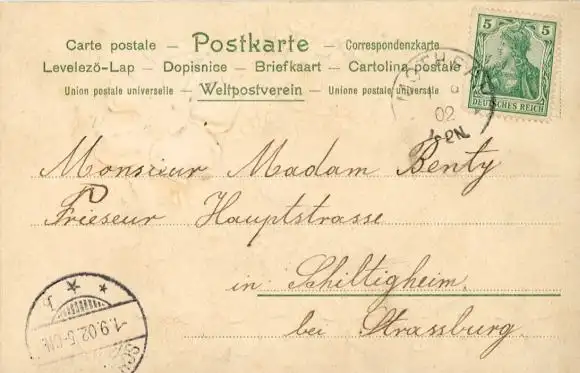 Carte postale — Postkarte — Correspondenzkarte
Levelezö-Lap — Dopisnice — Briefkaart — Cartolina postale
Union postale universelle — Weltpostverein — Unione postale universale
5 5
DEUTSCHES REICH
02
Monsieur Madam Benty
Friseur Hauptstrasse
in Schiltigheim
bei Strassburg.
1.9.02.5-6N.